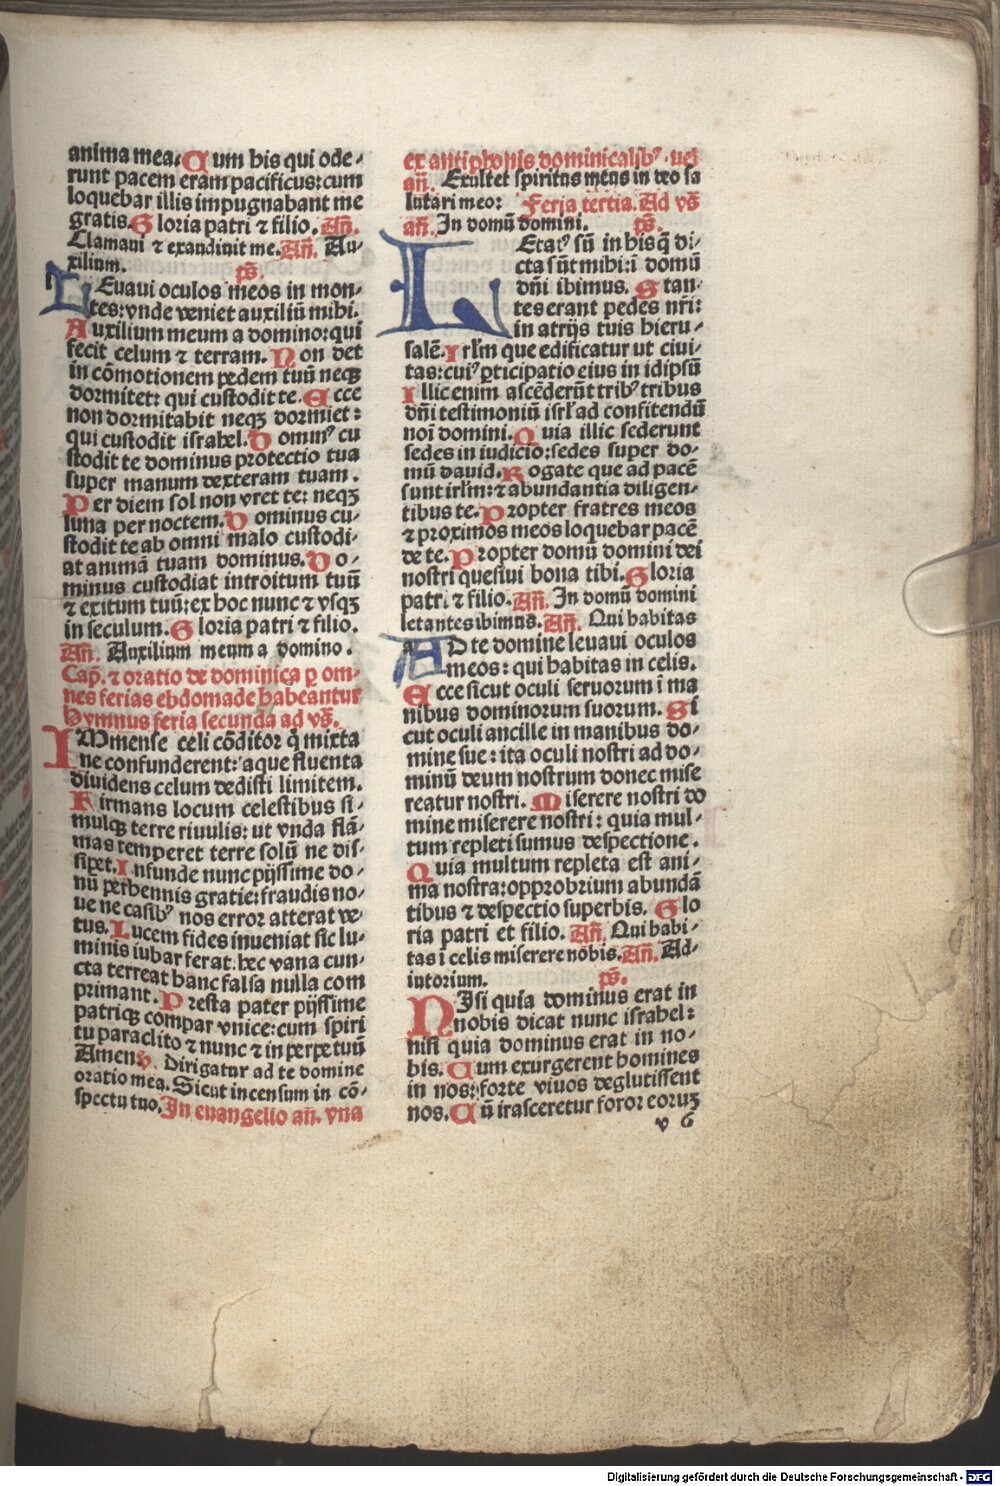 anima mea. Cum his qui ode⸗
runt pacem eram pacificus: cum
loquebar illis impugnabant me
gratis. Gloria patri ⁊ filio. Añ.
Clamaui ⁊ exaudiuit me. Añ. Au⸗
xilium. ps̄.
LEuaui oculos meos in mon⸗
tes: vnde veniet auxiliū mihi.
Auxilium meum a domino: qui
fecit celum ⁊ terram. Non det
in cōmotionem pedem tuū neqꝫ
dormitet: qui custodit te. Ecce
non dormitabit neqꝫ dormiet:
qui custodit israhel. Domin⁹ cu
stodit te dominus protectio tua
super manum dexteram tuam.
Per diem sol non vret te: neqꝫ
luna per noctem. Dominus cu⸗
stodit te ab omni malo custodi⸗
at animā tuam dominus. Do⸗
minus custodiat introitum tuū
⁊ exitum tuū: ex hoc nunc ⁊ vsqꝫ
in seculum. Gloria patri ⁊ filio.
Añ. Auxilium meum a domino.
Cap̄. ⁊ oratio de dominica ꝑ om⸗
nes ferias ebdomade habeantur
Hymnus feria secunda ad vs̄.
IMmense celi cōditor q̄ mixta
ne confunderent: aque fluenta
diuidens celum dedisti limitem.
Firmans locum celestibus si⸗
mulqꝫ terre riuulis: ut vnda flā⸗
mas temperet terre solū ne dis⸗
sipet. Infunde nunc pijssime do⸗
nū perhennis gratie: fraudis no⸗
ue ne casib⁹ nos error atterat ve⸗
tus. Lucem fides inueniat sic lu⸗
minis iubar ferat: hec vana cun⸗
cta terreat hanc falsa nulla com
primant. Presta pater pijssime
patriqꝫ compar vnice: cum spiri
tu paraclito ⁊ nunc ⁊ in perpetuū
Amen. v. Dirigatur ad te domine
oratio mea. Sicut incensum in cō⸗
spectu tuo. In euangelio añ. vna
ex antiphonis dominicalib⁹. uel
añ. Exultet spiritus meus in deo sa
lutari meo: Feria tertia. Ad vs̄
añ. In domū domini. ps̄.
LEtat⁹ sū in his q̄ di⸗
cta sūt mihi: ī domū
dn̄i ibimus. Stan⸗
tes erant pedes nr̄i:
in atrijs tuis hieru⸗
salē. Irl̄m que edificatur ut ciui⸗
tas: cui⁹ ꝑticipatio eius in idipsū
Illic enim ascēderūt trib⁹ tribus
dn̄i testimoniū isrl̄ ad confitendū
noī domini. Quia illic sederunt
sedes in iudicio: sedes super do⸗
mū dauid. Rogate que ad pacē
sunt irl̄m: ⁊ abundantia diligen⸗
tibus te. Propter fratres meos
⁊ proximos meos loquebar pacē
de te. Propter domū domini dei
nostri quesiui bona tibi. Gloria
patri ⁊ filio. Añ. In domū domini
letantes ibimus. Añ. Qui habitas
AD te domine leuaui oculos
meos: qui habitas in celis.
Ecce sicut oculi seruorum ī ma
nibus dominorum suorum. Si
cut oculi ancille in manibus do⸗
mine sue: ita oculi nostri ad do⸗
minū deum nostrum donec mise
reatur nostri. Miserere nostri do
mine miserere nostri: quia mul⸗
tum repleti sumus despectione.
Quia multum repleta est ani⸗
ma nostra: opprobrium abundā
tibus ⁊ despectio superbis. Glo
ria patri et filio. Añ. Qui habi⸗
tas ī celis miserere nobis. Añ. Ad⸗
iutorium. ps̄.
NIsi quia dominus erat in
nobis dicat nunc israhel:
nisi quia dominus erat in no⸗
bis. Cum exurgerent homines
in nos: forte viuos deglutissent
nos. Cū irasceretur foror eoruꝫ
v 6
Digitalisierung gefördert durch die Deutsche Forschungsgemeinschaft - DFG